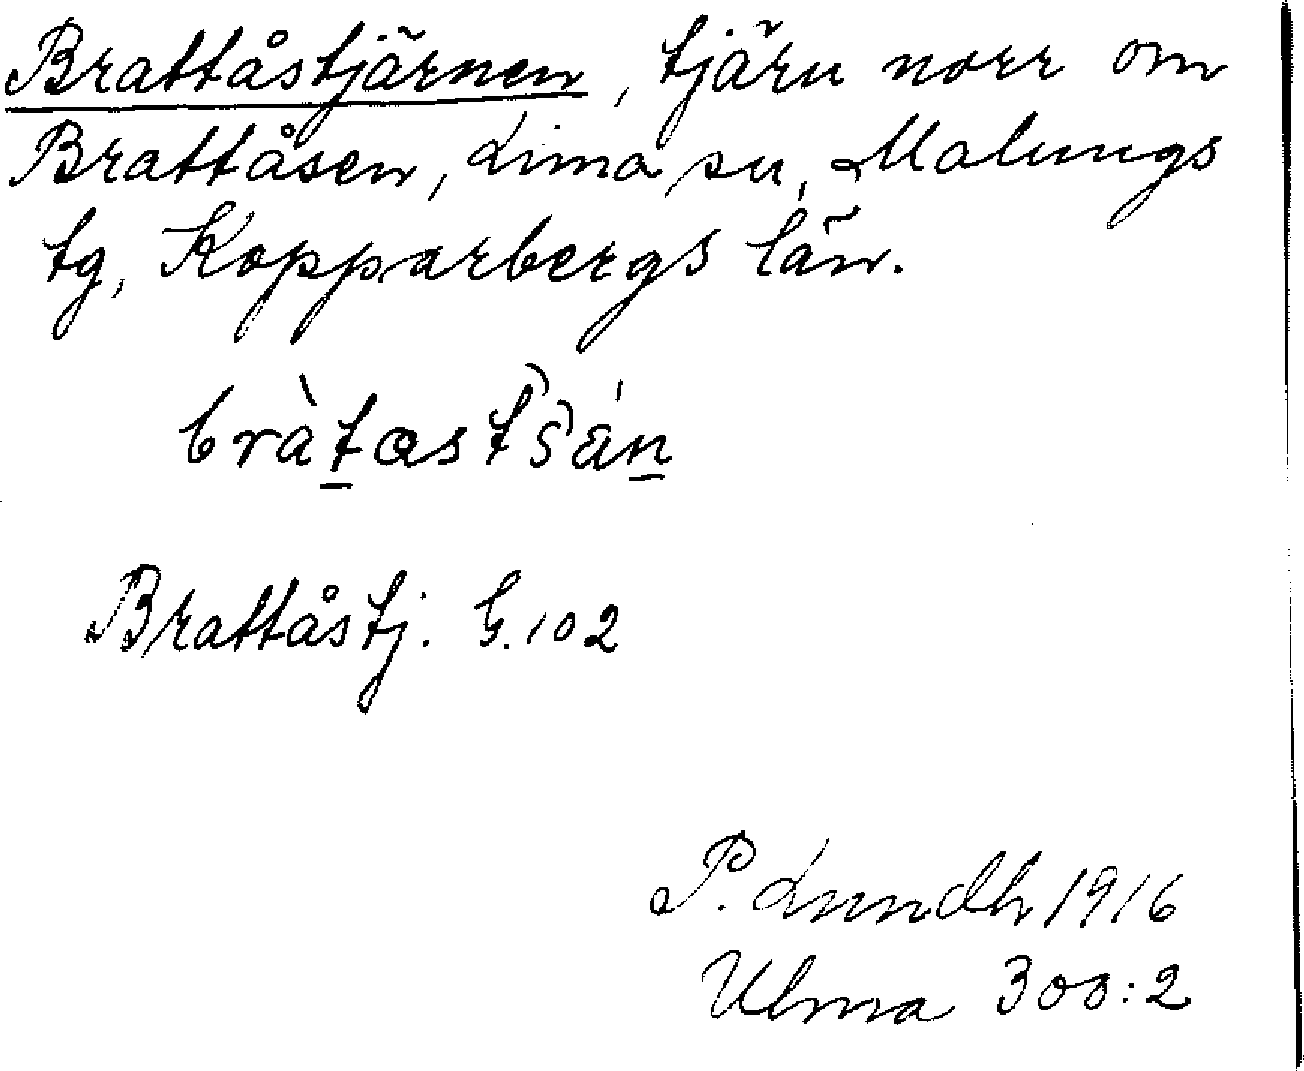 Brattåstjärnen, tjärn norr om
Brattåsen, Lima sn, Malungs
tg, Kopparbergs län.
bràt̲ast̑s̑án̲
Brattåstj. G. 102
P. Lundh 1916
Ulma 300:2